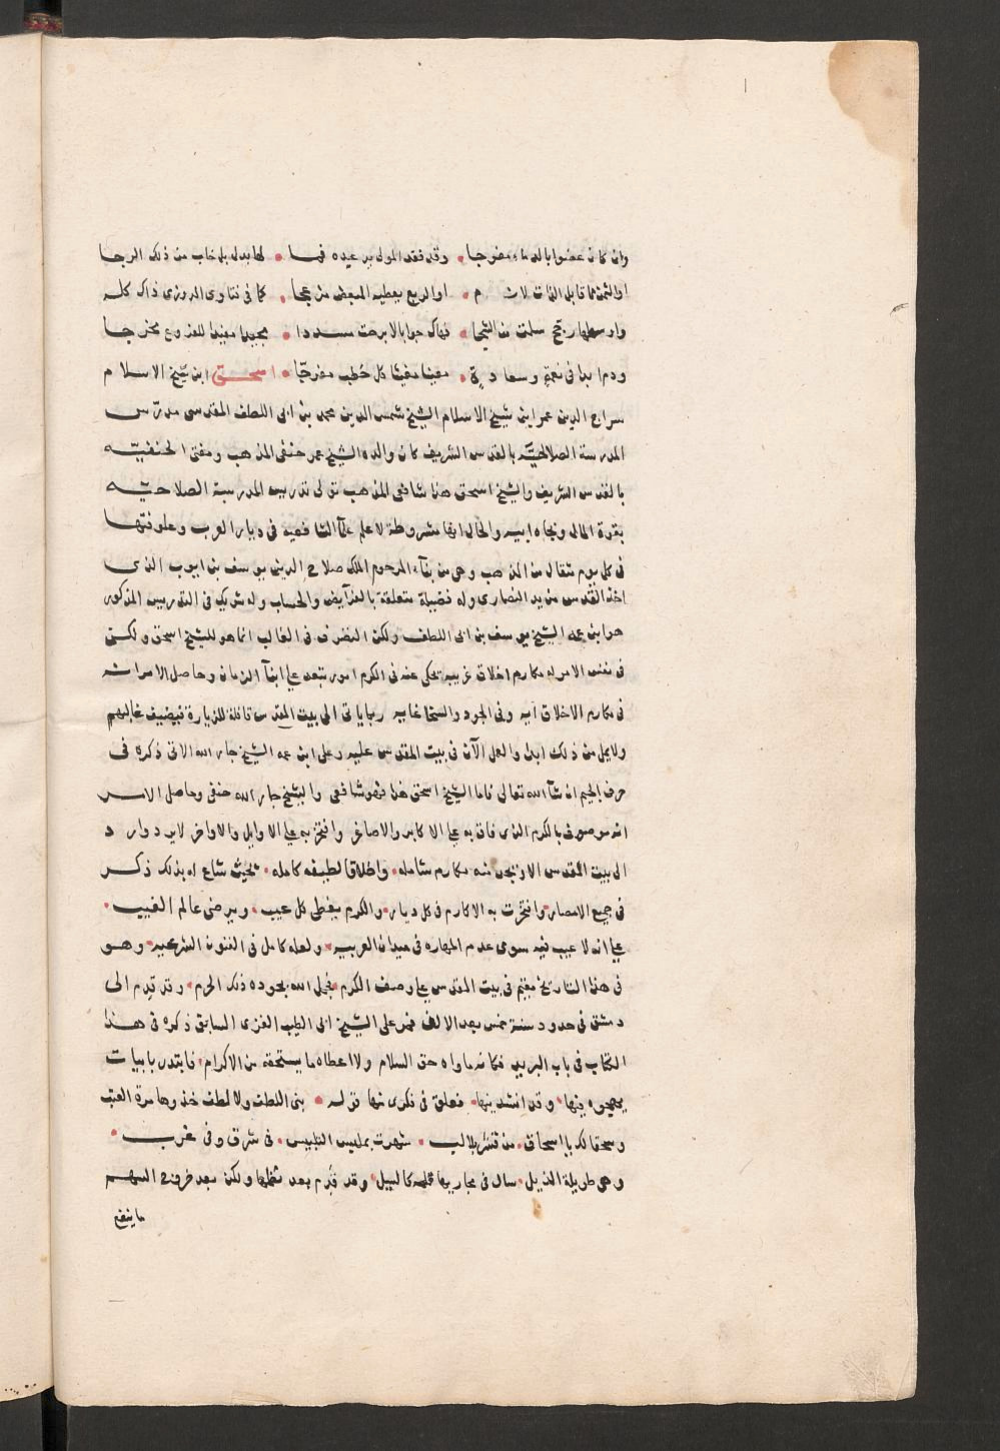 وان كان عضوا بالدماء مضرجا • وقد فقد المولى يد عبده فما • لها بدل بل خاب من ذلك الرجا
او الثمن مما قابل الذات لازم • او الربع يعطيه المبعض من عجا • كما في فتاوى البزازى ذاك كله
وارسلها رجح سلمت من الشجا • فهاك جوابا لا برحت مسددا • مجيدا مفيدا للفروع مخرجا
ودم ابدا في نعمة وسعادة • مغيثا مغيثا كل خطب مفرجا • اسحق ابن شيخ الاسلام
سراج الدين عمر ابن شيخ الاسلام الشيخ شمس الدين محمد بن ابى اللطف المقدسى مدرس
المدرسة الصلاحيّة بالقدس الشريف كان والده الشيخ عمر حنفى المذهب ومفتى الحنفيّه
بالقدس الشريف والشيخ اسحق هذا شافعى المذهب تولى تدريس المدرسة الصلاحيّه
بقوة المال وبجاه ابيه والحال انها مشروطة لاعلم علمآ الشافعيه فى ديار العرب وعلوفتها
فى كل يوم مثقال من الذهب وهى من بنآء المرحوم الملك صلاح الدين يوسف بن ايوب الذى
اخذ القدس من يد النصارى وله فضيلة متعلقة بالفرآيض والحساب وله شريك فى التدريس المذكور
هو ابن عمه الشيخ يوسف بن ابى اللطف ولكن التصرف فى الغالب انما هو للشيخ اسحق ولكن
فى نفس الامر له مكارم اخلاق غريبه تحكى عنه فى الكرم امور تبعد على ابنآ الزمان وحاصل الامر انه
فى مكارم الاخلاق آيه وفى الجود والسخا غايه ربما ياتى الى بيت المقدس قافلة للزيارة فيضيف غالبهم
ولا يمل من ذلك ابدا والعمل الآن فى بيت المقدس عليه وعلى ابن عمه الشيخ جار الله الآتى ذكره فى
حرف الجيم ان شآ الله تعالى فاما الشيخ اسحق هذا فهو شافعى والشيخ جار الله حنفى وحاصل الامر
انه موصوف بالكرم الذى فاق به على الاكابر والاصاغر وافتخر به على الاوايل والاواخر لا يرد وارد
الى بيت المقدس الا ويجد منه مكارم شامله • واخلاقا لطيفه كامله • بحيث شاع له بذلك ذكر
فى جميع الامصار • وافتخرت به الاكارم فى كل ديار • والكرم يغطى كل عيب • ويرضى عالم الغيب •
على انه لا عيب فيه سوى عدم المهاره فى ميدان العربيه • ولعله كامل فى الفنون الشرعيه • وهو
فى هذا التاريخ مقيم فى بيت المقدس على وصف الكرم • فجمل الله بجوده ذلك الحرم • وقد قدم الى
دمشق فى حدود سنة خمس بعد الالف فمر على الشيخ ابى الطيب الغزى السابق ذكره فى هذا
الكتاب فى باب البريد فكانه ما واه حق السلام ولا اعطاه ما يستحقه من الاكرام • فابتدر بابيات
يهجوه فيها • وقد انشدنيها • فعلق فى فكرى منها قوله • بنى اللطف ولا لطف خذوها مرة العتب
وسحقا لك يا اسحاق • من قشر بلا لب • شهرت بملبس التلبيس • فى شرق وفى غرب •
وهى طويلة الذيل • سال فى مجاريها قلمه كالسيل • وقد ندم بعد نظمها ولكن بعد خروج السهم
ما ينفع